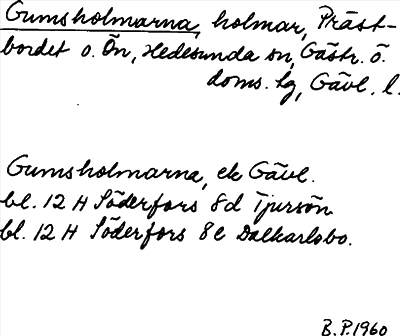 Gumsholmarna, holmar, Präst-
bordet o. Ön, Hedesunda sn, Gästr. ö.
doms. lg, Gävl. l.
Gumsholmarna, ek Gävl.
bl. 12 H Söderfors 8d Tjursön
bl. 12 H Söderfors 8e Dalkarlsbo.
B.P. 1960